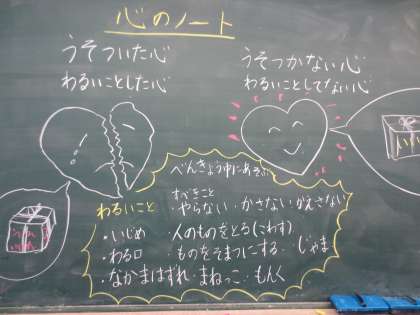 心のノート
うそついた心
わるいことした心
うそつかない心
わるいことしてない心
べんきょう中にあそぶ
すべきこと
わるいこと・やらない・かさない・かえさない
・いじめ ・人のものをとる(こわす)
・わる口 ・ものをそまつにする・じゃま
・なかまはずれ・まねっこ・もんく